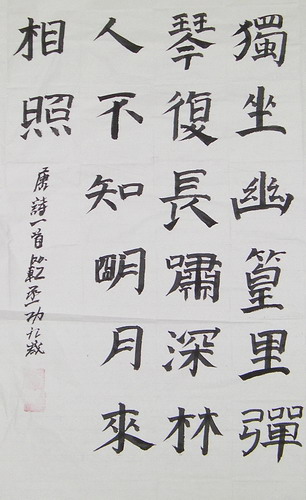 獨坐幽篁里彈
琴復長嘯深林
人不知明月來
相照
唐詩一首